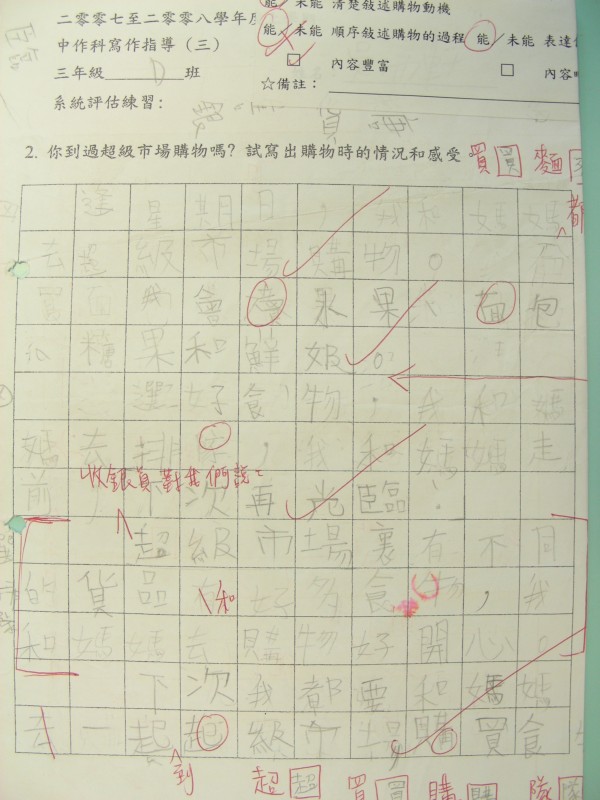 二零零七至二零零八學年度
中作科寫作指導（三）
三年級 D 班
系統評估練習：
能 未能 清楚敘述購物動機
能 未能 順序敘述購物的過程 能 未能 表達
內容豐富
☆備註：
2. 你到過超級市場購物嗎？試寫出購物時的情況和感受
買 買 麵
逢星期日，我和媽媽都
去超級市場購物。
買 面 我會 水果、面包
糖果和鮮奶。
選好食物，我和媽
媽去排 ，我和媽媽走
收銀員對我們說：
前 次再光臨！
超級市場裏有不同
的貨品和好多食物，我
和媽媽去購物好開心。
下次我都要和媽媽
去一起到起級市場購買食
超 超 買 買 購 購 隊 隊